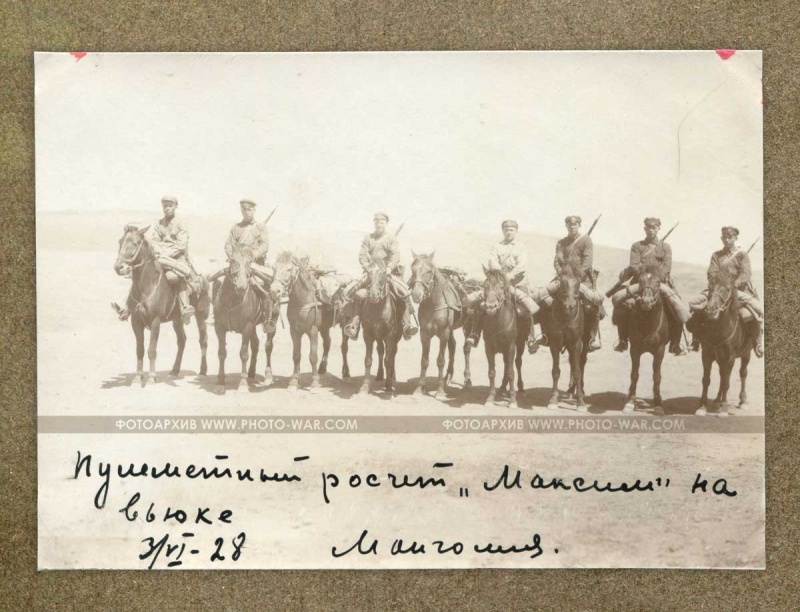 ФОТОАРХИВ WWW.PHOTO-WAR.COM ФОТОАРХИВ WWW.PHOTO-WAR.COM
Пулеметный росчет „Максим" на
вьюке
3/VI-28 Монголия.